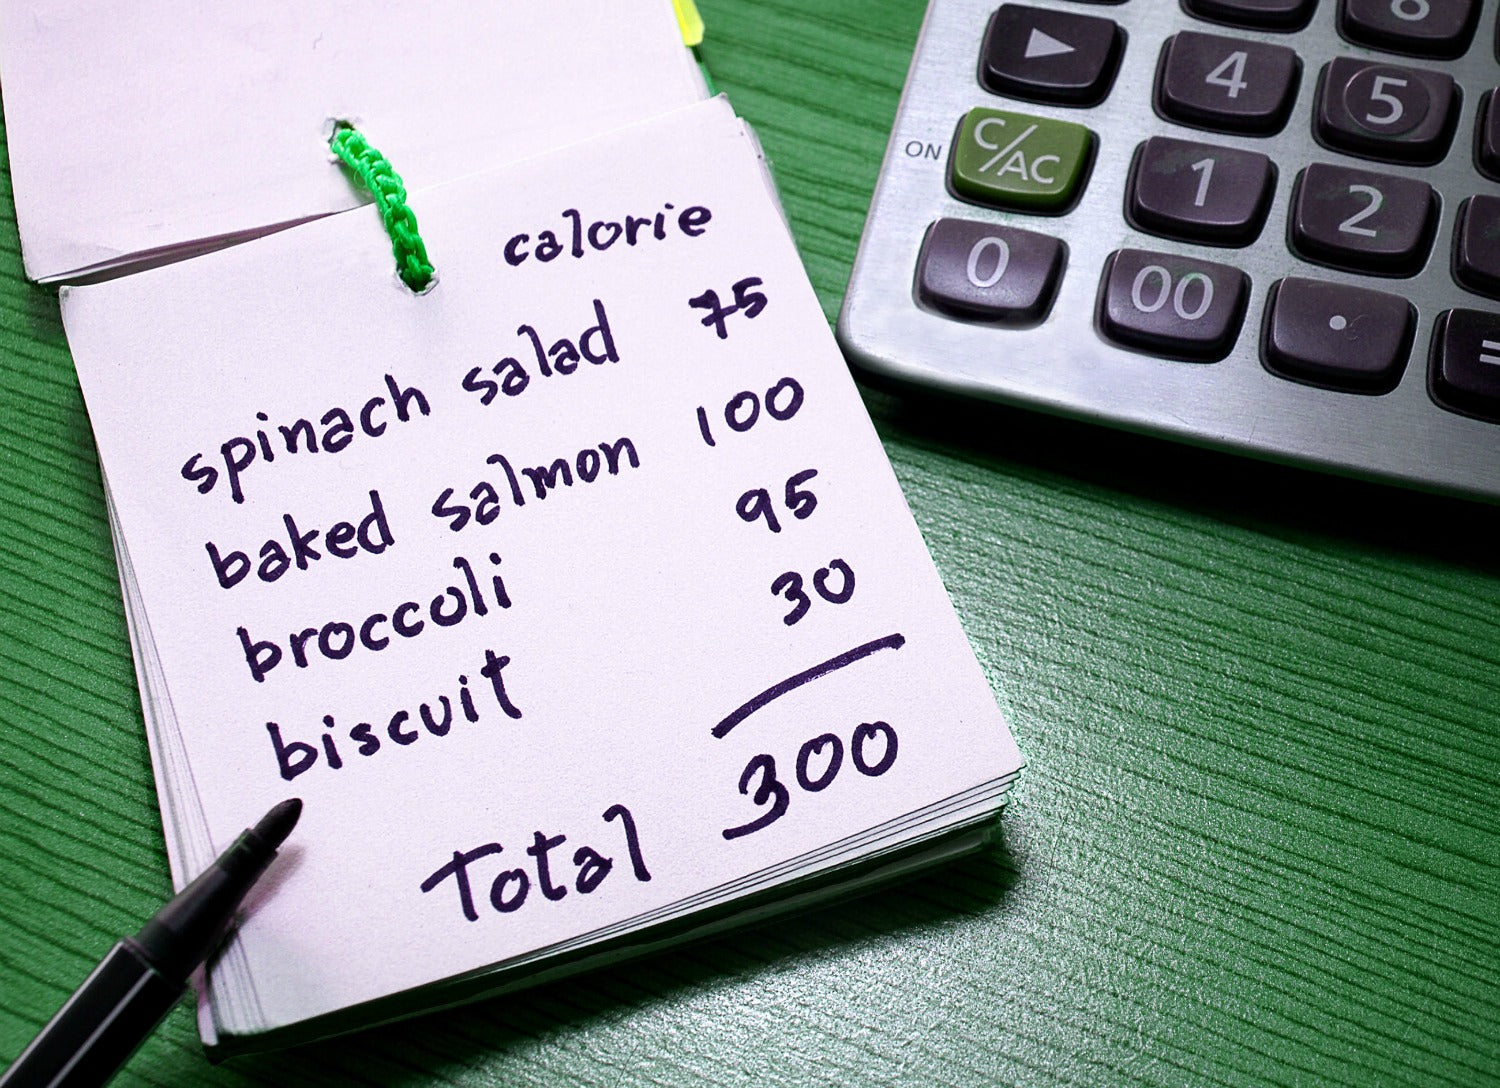 calorie
spinach salad 75
baked salmon 100
broccoli 95
biscuit 30
Total 300
4 5
ON C/AC 1 2
0 00 . =